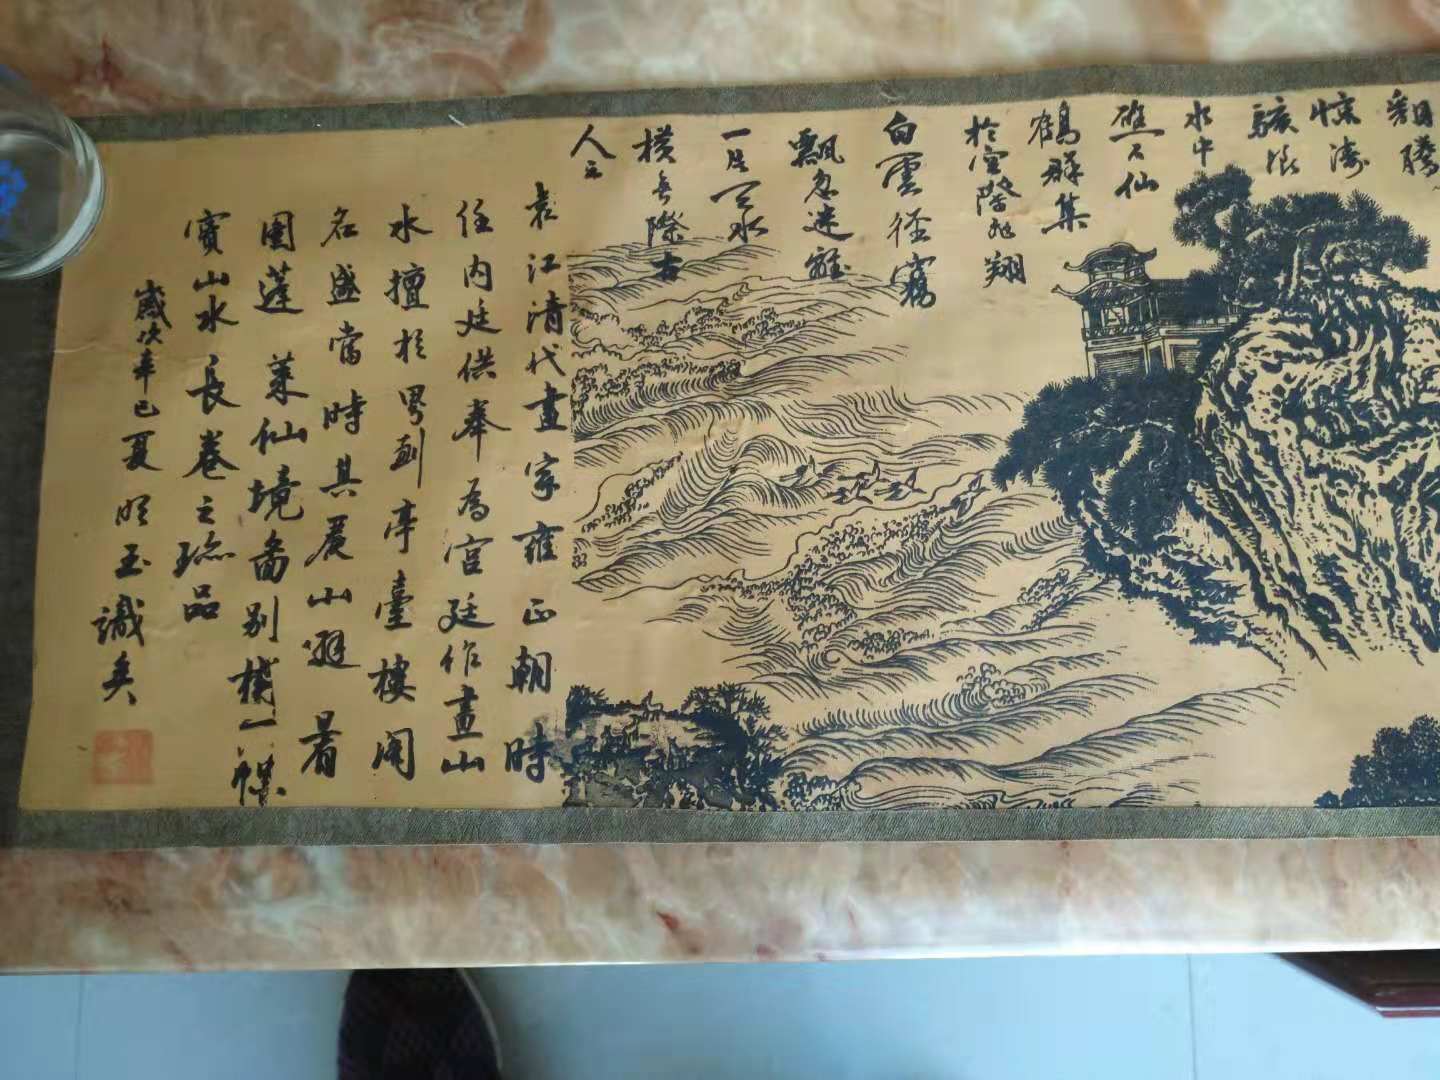 翻騰
惊涛
骇浪
水中
礁石仙
鶴群集
於空階旭翔
白雲徑窩
飄忽迷離
一片天水
横無際古
人云
袁江清代畫家雍正朝時
任内廷供奉為宫廷作畫山
水擅於界劃亭臺樓閣
名盛當時其展山避暑
图蓬萊仙境圖别樣一幀
寶山水長卷之珎品
歲次辛巳夏旺玉識矣